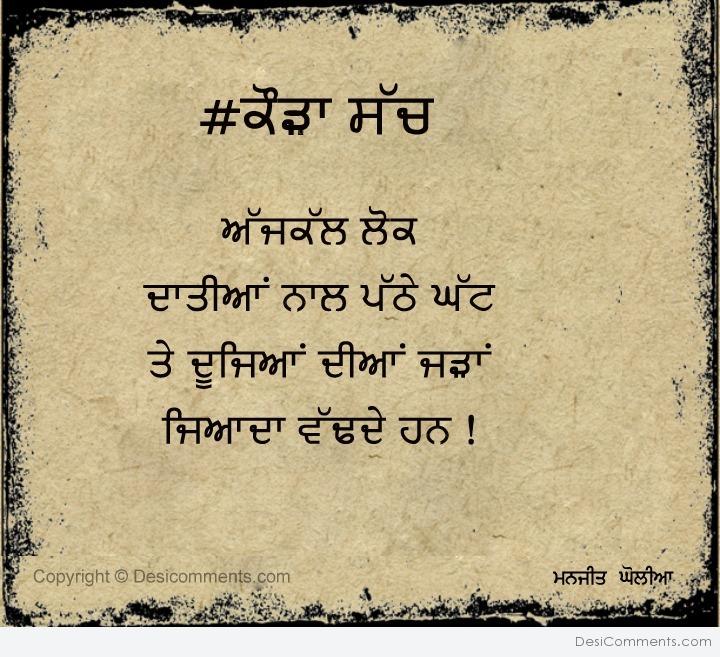 #ਕੌੜਾ ਸੱਚ
ਅੱਜਕੱਲ ਲੋਕ
ਦਾਤੀਆਂ ਨਾਲ ਪੱਠੇ ਘੱਟ
ਤੇ ਦੂਜਿਆਂ ਦੀਆਂ ਜੜ੍ਹਾਂ
ਜਿਆਦਾ ਵੱਢਦੇ ਹਨ !
Copyright © Desicomments.com
ਮਨਜੀਤ ਘੋਲੀਆ
DesiComments.com